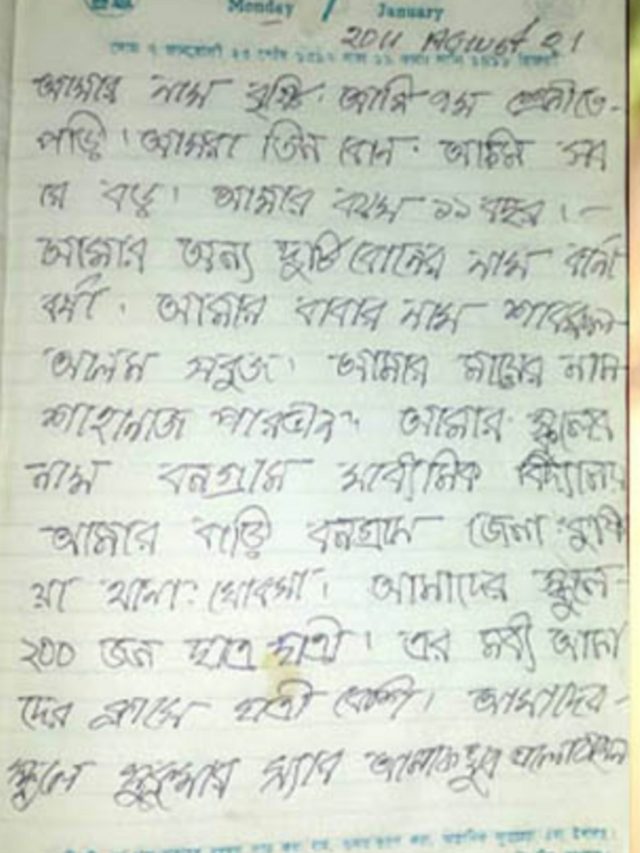 Monday 7 January
2011 August 21
আমার নাম বৃষ্টি। আমি ৭ম শ্রেনীতে-
পড়ি। আমরা তিন বোন। আমি সব
রে বড়। আমার বয়স ১১ বছর।-
আমার অন্য দুটি বোনের নাম বর্না
বর্ষা। আমার বাবার নাম
আলম সবুজ। আমার মায়ের নাম
শাহানাজ পারভীন। আমার স্কুলের
নাম বনগ্রাম মাধ্যমিক বিদ্যালয়
আমার বাড়ি বনগ্রাম জেলা: কুষ্টি
য়া থানা: খোকসা। আমাদের স্কুলে-
২০০ জন ছাত্র ছাত্রী। এর মধ্যে আমা
দের ক্লাসে ছাত্রী বেশি। আমাদের-
স্কুলে স্যার আমাকে খুব